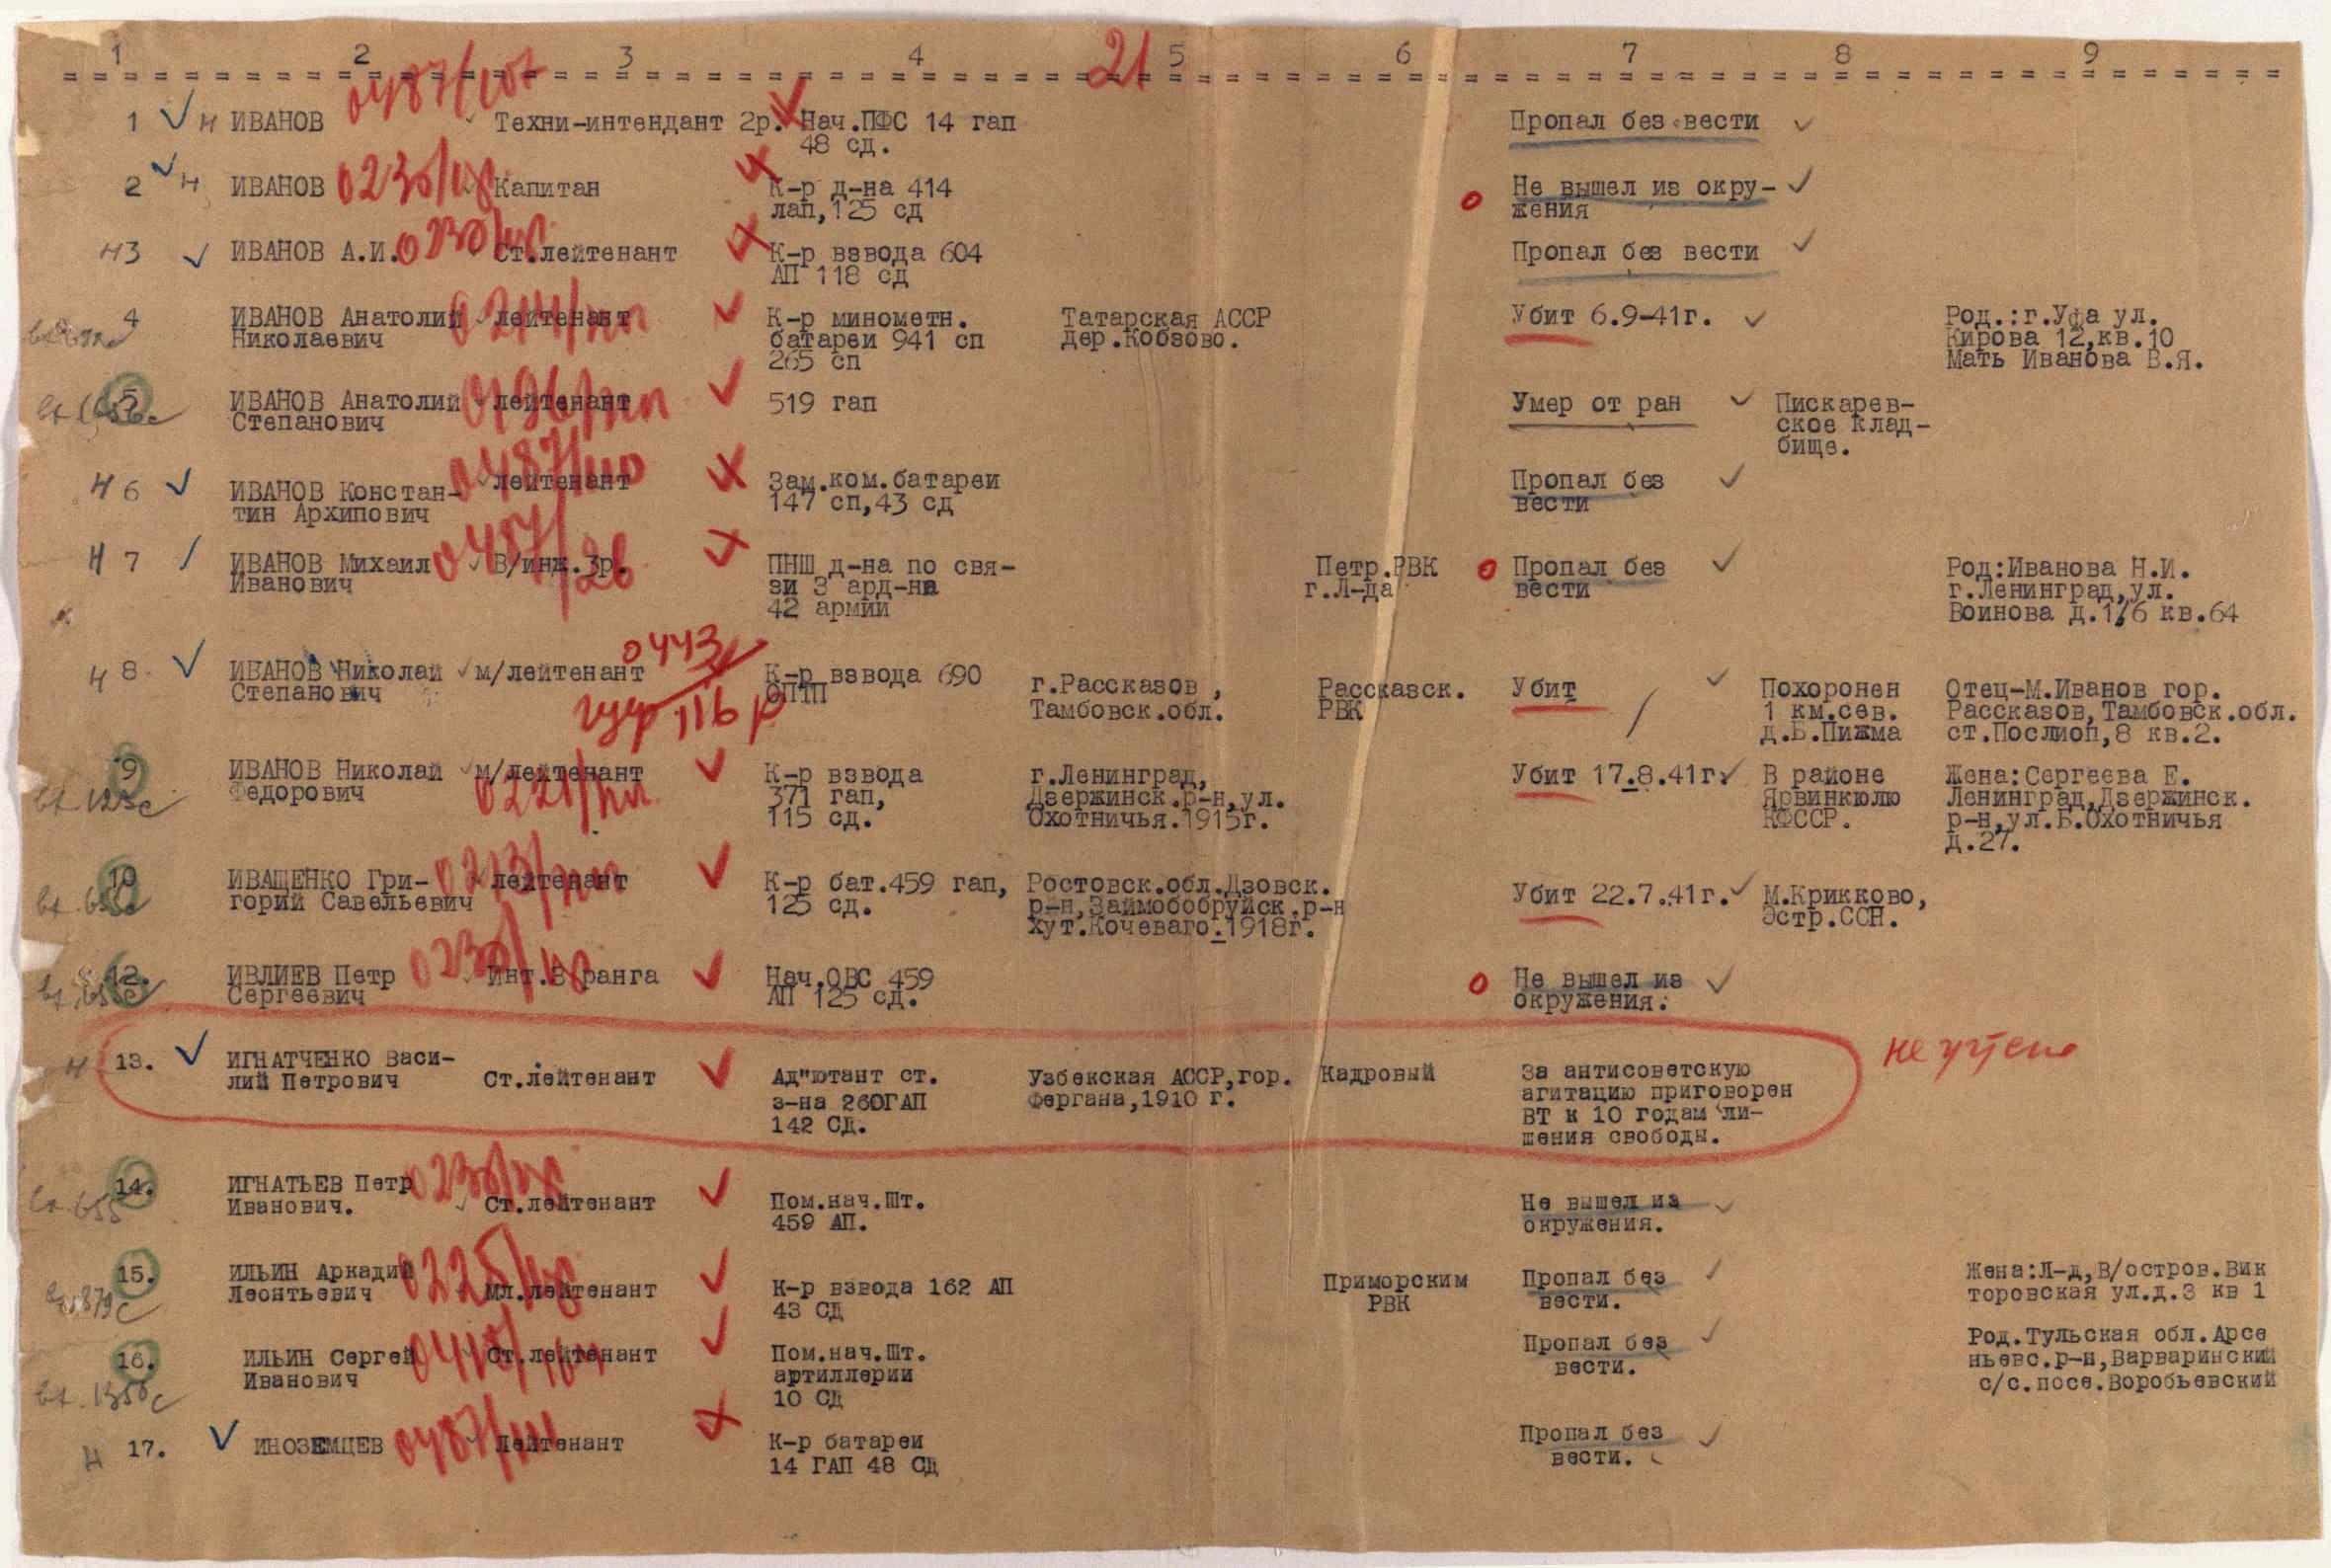 1 2 3 4 21 5 6 7 8 9
0487/
1 Н ИВАНОВ Техни-интендант 2р. Нач.ПФС 14 гап Пропал без вести
48 сд.
2 Н ИВАНОВ Капитан К-р д-на 414 Не вышел из окру-
лап,125 сд жения
Н3 ИВАНОВ А.И. Ст.лейтенант К-р взвода 604 Пропал без вести
АП 118 сд
4 ИВАНОВ Анатолий лейтенант К-р минометн. Татарская АССР Убит 6.9-41г. Род.:г.Уфа ул.
Николаевич батареи 941 сп дер.Кобзово. Кирова 12,кв.10
265 сп Мать Иванова В.Я.
5 ИВАНОВ Анатолий лейтенант 519 гап Умер от ран Пискарев-
Степанович ское клад-
бище.
Н 6 ИВАНОВ Констан- лейтенант Зам.ком.батареи Пропал без
тин Архипович 147 сп,43 сд вести
Н 7 ИВАНОВ Михаил В/инж.3р. ПНШ д-на по свя- Петр.РВК Пропал без Род:Иванова Н.И.
Иванович зи 3 ард-на г.Л-да вести г.Ленинград,ул.
42 армии Воинова д.1/6 кв.64
0443
Н 8 ИВАНОВ Николай м/лейтенант К-р взвода 690 г.Рассказов, Рассказск. Убит Похоронен Отец-М.Иванов гор.
Степанович ОПТП Тамбовск.обл. РВК 1 км.сев. Рассказов,Тамбовск.обл.
116 д.Б.Пижма ст.Послиоп,8 кв.2.
9 ИВАНОВ Николай м/лейтенант К-р взвода г.Ленинград, Убит 17.8.41г. В районе Жена:Сергеева Е.
Федорович 371 гап, Дзержинск.р-н,ул. Ярвинкюлю Ленинград,Дзержинск.
115 сд. Охотничья.1915г. КФССР. р-н,ул.Б.Охотничья
д.27.
10 ИВАЩЕНКО Гри- лейтенант К-р бат.459 гап, Ростовск.обл.Дзовск. Убит 22.7.41г. М.Крикково,
горий Савельевич 125 сд. р-н,Займобобруйск.р-н Эстр.ССН.
хут.Кочеваго.1918г.
12. ИВЛИЕВ Петр Инт.3 ранга Нач.ОВС 459 Не вышел из
Сергеевич АП 125 сд. окружения.
Н 13. ИГНАТЧЕНКО Васи- Ст.лейтенант Ад"ютант ст. Узбекская АССР,гор. Кадровый За антисоветскую не учтено
лий Петрович з-на 260ГАП Фергана,1910 г. агитацию приговорен
142 СД. ВТ к 10 годам ли-
шения свободы.
14. ИГНАТЬЕВ Петр Ст.лейтенант Пом.нач.Шт. Не вышел из
Иванович. 459 АП. окружения.
15. ИЛЬИН Аркадий Мл.лейтенант К-р взвода 162 АП Приморским Пропал без Жена:Л-д,В/остров.Вик
Леонтьевич 43 СД РВК вести. торовская ул.д.3 кв 1
16. ИЛЬИН Сергей Ст.лейтенант Пом.нач.Шт. Пропал без Род.Тульская обл.Арсе
Иванович артиллерии вести. ньевс.р-н,Варваринский
10 СД с/с.посе.Воробьевский
Н 17. ИНОЗЕМЦЕВ Лейтенант К-р батареи Пропал без
14 ГАП 48 СД вести.